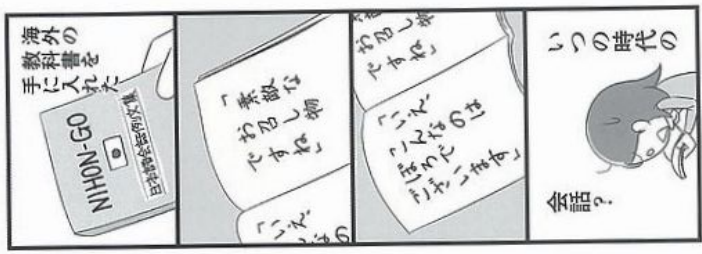 海外の
教科書を
手に入れた
NIHON-GO
日本語会話例文集
「素敵な
お召し物
ですね」
「いえ、
お召し物
ですね」
「いえ、
こんなのは
ぼろで
ございます」
いつの時代の
会話?